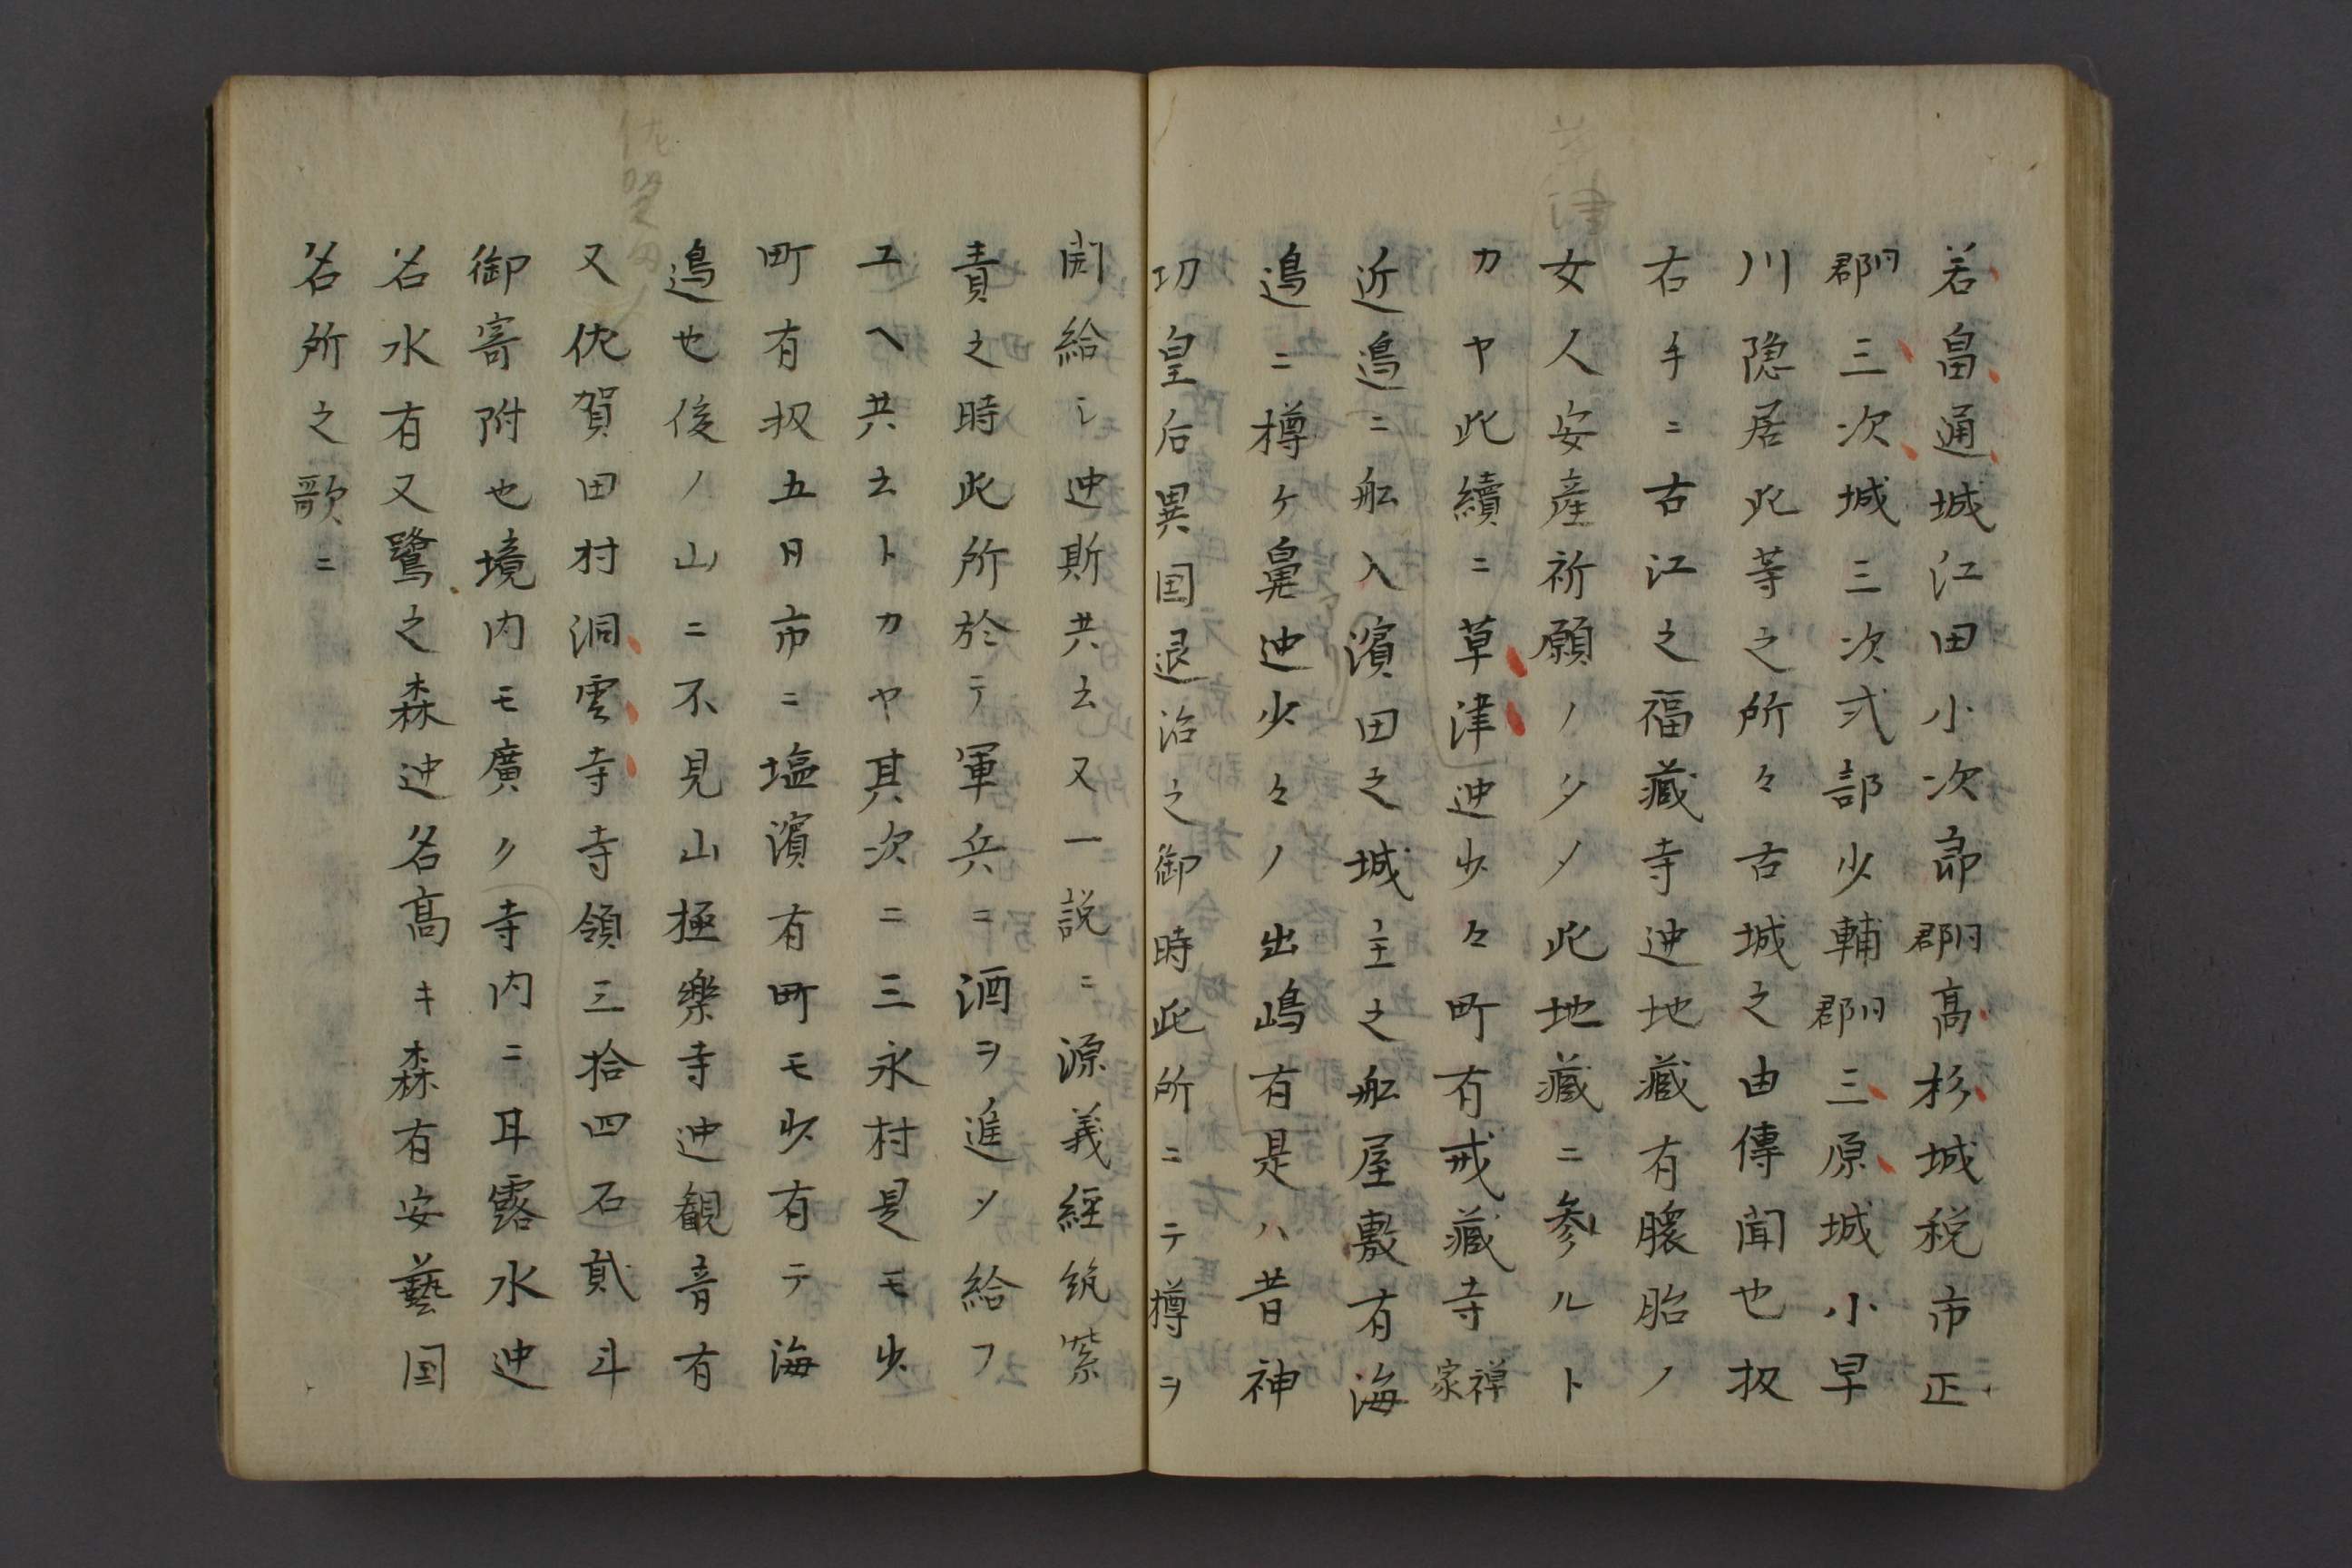 若畠通城江田小次郎同郡高杉城税市正
同郡三次城三次弍部少輔同郡三原城小早
川隠居此等之所々古城之由傳聞也扨
右手ニ古江之福藏寺迚地藏有腹胎ノ
女人安産祈願ノタメ此地藏ニ参ルト
カヤ此續ニ草津迚少々町有戒藏寺禅家
近邉ニ舩入濱田之城主之舩屋敷有海
邉ニ樽ヶ鼻迚少々ノ出嶋有是ハ昔神
功皇后異国退治之御時此所ニテ樽ヲ
開給シ迚斯共云又一説ニ源義經筑紫
責之時此所於テ軍兵ニ酒ヲ進メ給フ
ユヘ共云トカヤ其次ニ三永村是モ少
町有扨五日市ニ塩濱有町モ少有テ海
邉也後ノ山ニ不見山極樂寺迚観音有
又佐賀田村洞雲寺寺領三拾四石貳斗
御寄附也境内モ廣ク寺内ニ耳露水迚
名水有又鷺之森迚名高キ森有安藝国
名所之歌ニ
草津